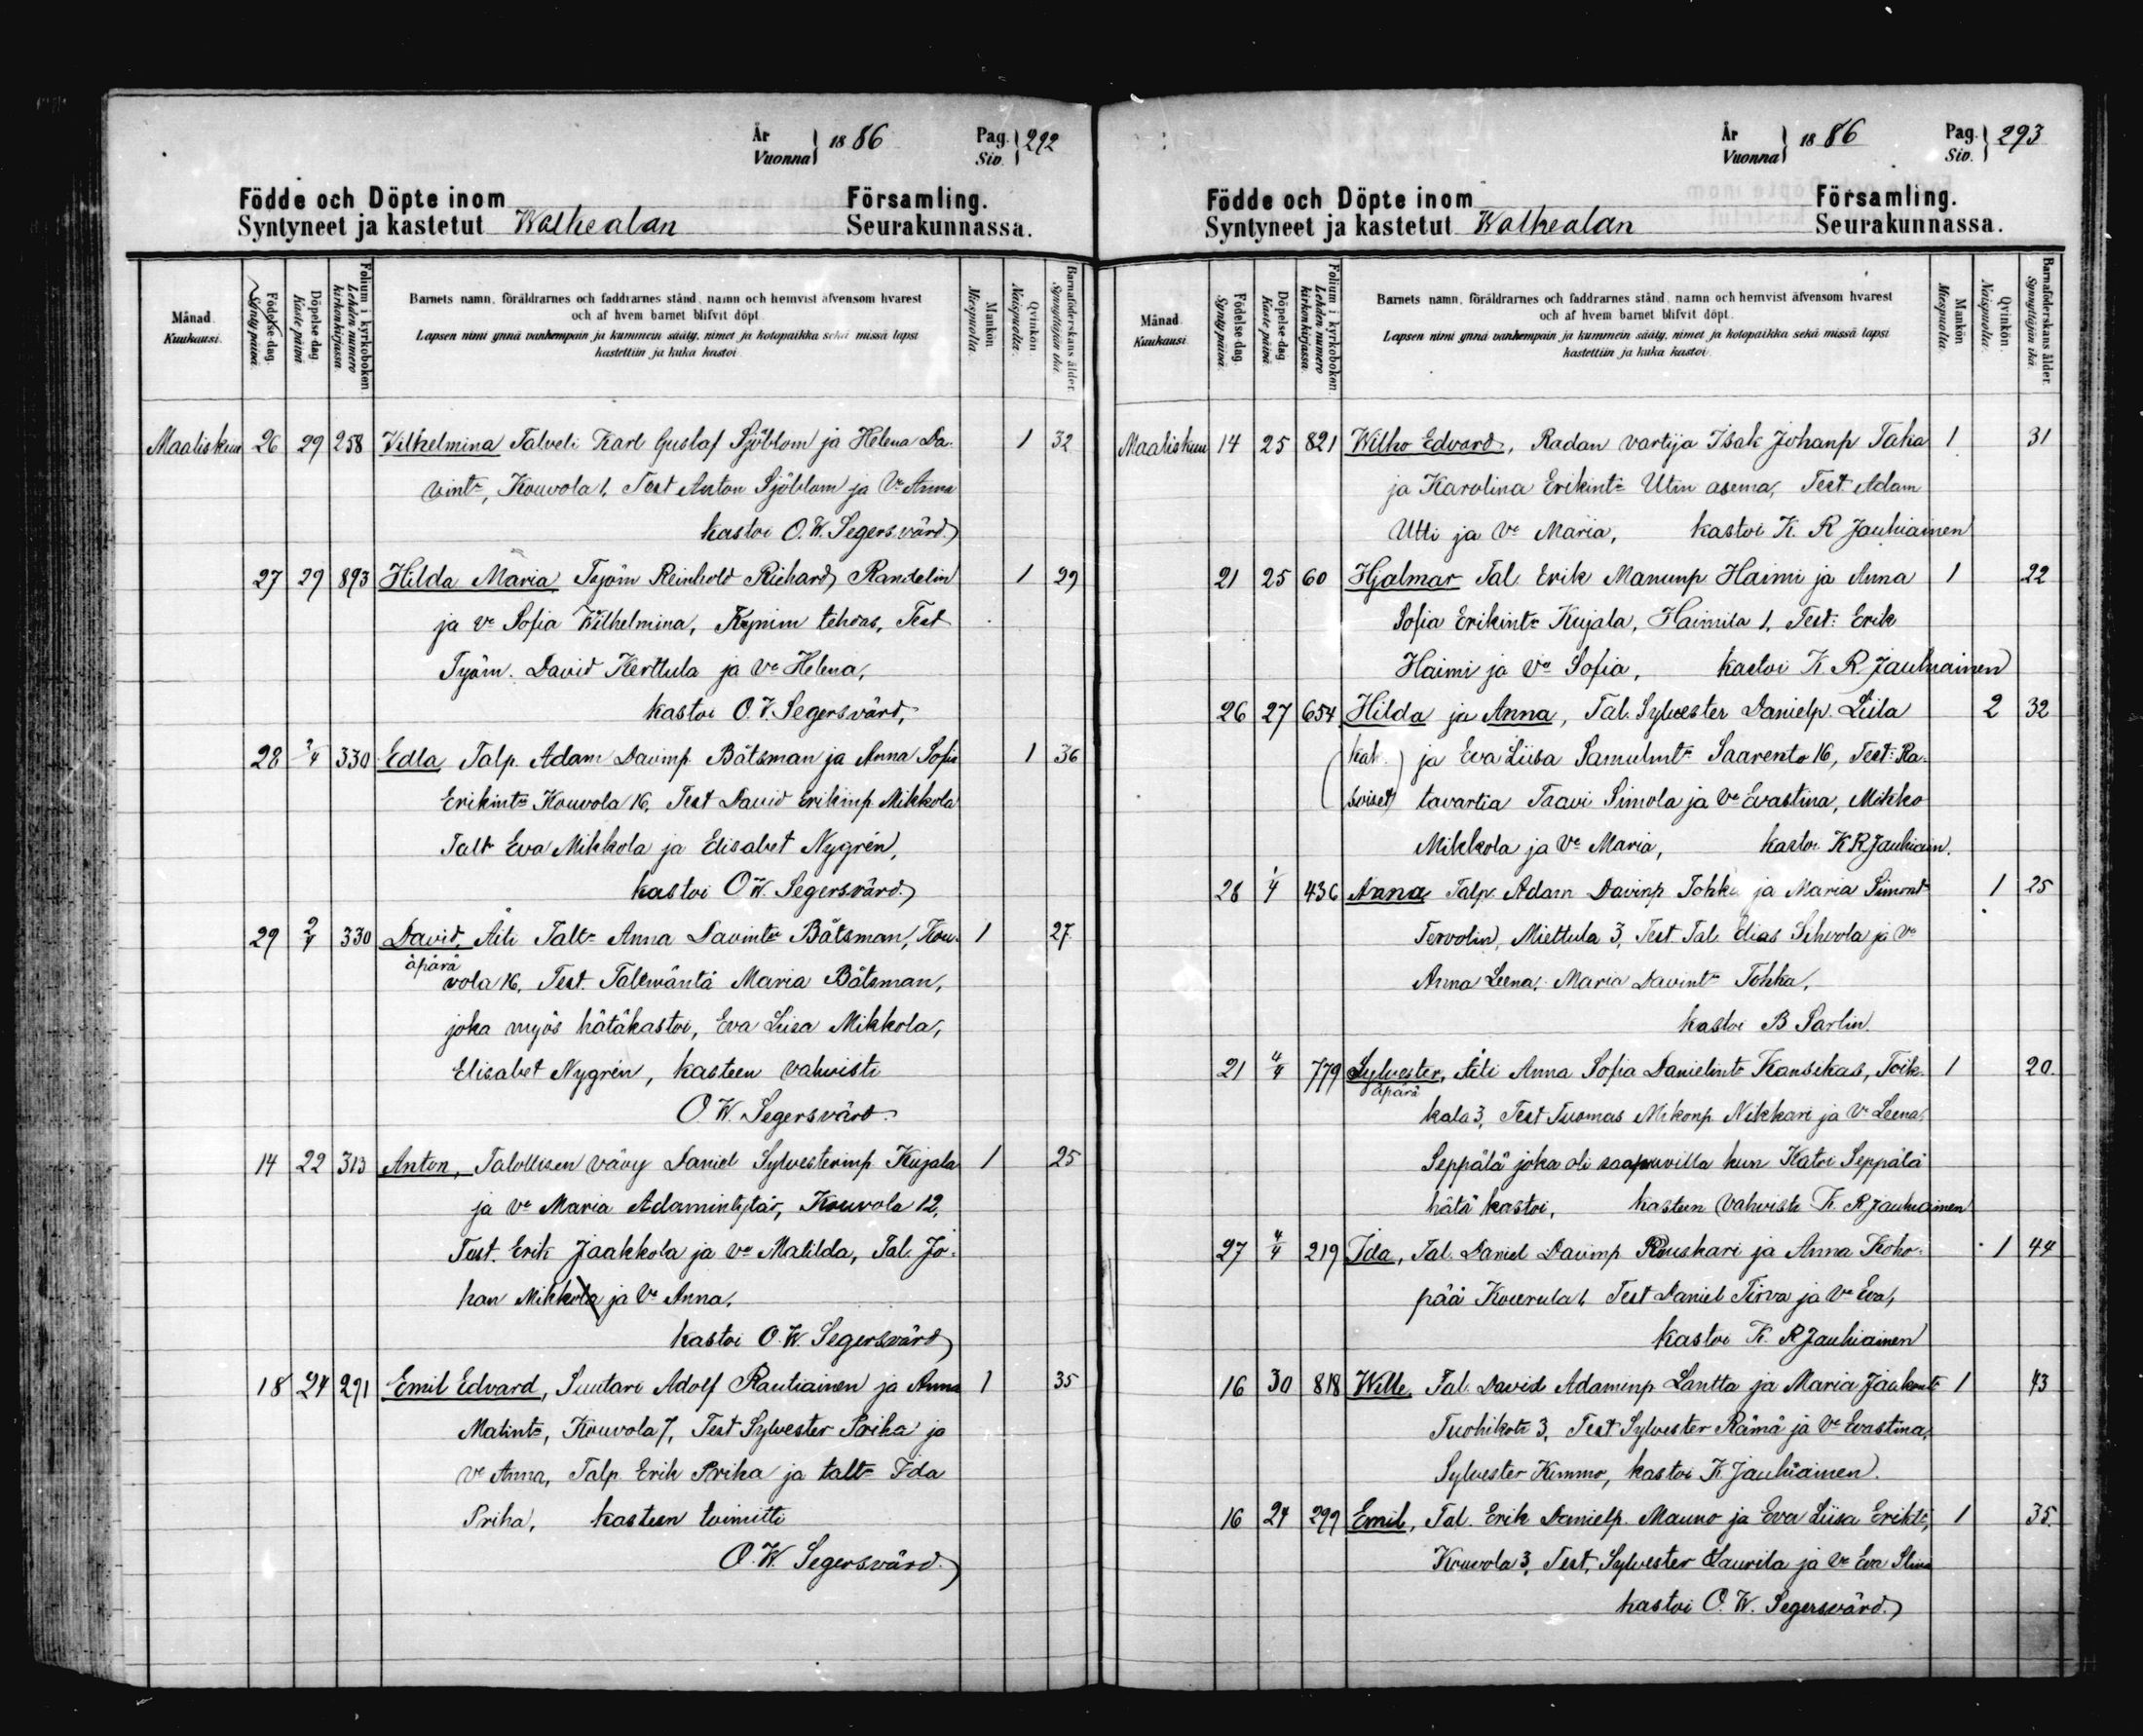 År
Vuonna } 1886 Pag. Siv. } 292
Födde och Döpte inom Församling.
Syntyneet ja kastetut Walkealan Seurakunnassa.
Månad. Kuukausi.
Födelse-dag. Syntypäivä.
Döpelse-dag. Kastepäivä.
Folium i kyrkoboken. Lehden numero kirkonkirjassa.
Barnets namn, föräldrarnes och faddrarnes stånd, namn och hemvist äfvensom hvarest
och af hvem barnet blifvit döpt.
Lapsen nimi ynnä vanhempain ja kummein sääty, nimet ja kotopaikka sekä missä lapsi
kastettiin ja kuka kastoi.
Mankön. Miespuolia.
Qvinkön. Naispuolia.
Barnaföderskans ålder. Synnyttäjän ikä.
Maaliskuu 26 29 258 Vilhelmina Talveli Karl Gustaf Sjöblom ja Helena Da- 1 32
vint:, Kouvola 1, Test Anton Sjöblom ja Vo Anna
kastoi O. W. Segersvärd
27 29 893 Hilda Maria Työm Reinhold Richard Randelin 1 29
ja vo Sofia Wilhelmina, Kymin tehdas, Test
Työm. David Kerttula ja Vo Helena,
kastoi O. W. Segersvärd,
28 2/4 330 Edla Talp. Adam Davinp Båtsman ja Anna Sofia 1 36
Erikint: Kouvola 16, Test David Erikinp Mikkola
Talt: Eva Mikkola ja Elisabet Nygrén,
kastoi O W. Segersvärd
29 2/4 330 David, Äiti Talt: Anna Davint: Båtsman, Kou- 1 27
äpärä
vola 16, Test. Talemäntä Maria Båtsman,
joka myös hätäkastoi, Eva Liisa Mikkola,
Elisabet Nygrén, kasteen vahvisti
O. W. Segersvärd
14 22 313 Anton, Talollisen vävy Daniel Sylvesterinp Kujala 1 25
ja vo Maria Adamintytär, Kouvola 12,
Test. Erik Jaakkola ja vo Matilda, Tal. Jo-
han Mikkola ja Vo Anna,
kastoi O. W. Segersvärd
18 24 291 Emil Edvard, Suutari Adolf Rautiainen ja Anna 1 35
Matint:, Kouvola 7, Test Sylvester Priha ja
Vo Anna, Talp. Erik Priha ja talt: Ida
Priha, kasteen toimitti
O. W. Segersvärd.
År
Vuonna } 1886 Pag. Siv. } 293
Födde och Döpte inom Församling.
Syntyneet ja kastetut Walkealan Seurakunnassa.
Månad. Kuukausi.
Födelse-dag. Syntypäivä.
Döpelse-dag. Kastepäivä.
Folium i kyrkoboken. Lehden numero kirkonkirjassa.
Barnets namn, föräldrarnes och faddrarnes stånd, namn och hemvist äfvensom hvarest
och af hvem barnet blifvit döpt.
Lapsen nimi ynnä vanhempain ja kummein sääty, nimet ja kotopaikka sekä missä lapsi
kastettiin ja kuka kastoi.
Mankön. Miespuolia.
Qvinkön. Naispuolia.
Barnaföderskans ålder. Synnyttäjän ikä.
Maaliskuu 14 25 821 Wilho Edvard, Radan vartija Isak Johanp Taka 1 31
ja Karolina Erikint: Utin asema, Test Adam
Utti ja Vo Maria, kastoi K. R Jauhiainen
21 25 60 Hjalmar Tal. Erik Manunp Haimi ja Anna 1 22
Sofia Erikint: Kujala, Haimila 1, Test: Erik
Haimi ja Vo Sofia, kastoi K. R. Jauhiainen
26 27 654 Hilda ja Anna, Tal. Sylvester Danielp. Liila 2 32
(kak- ) ja Eva Liisa Samulint: Saarento 16, Test: Ra-
(soiset) tavartia Taavi Simola ja Vo Evastina, Mikko
Mikkola ja Vo Maria, kastoi K R Jauhiain.
28 1/4 436 Anna Talp. Adam Davinp Tohka ja Maria Simont: 1 25
Tervolin, Miettula 3, Test. Tal. Elias Sihvola ja Vo
Anna Leena, Maria Davint: Tohka,
kastoi B Sarlin
21 4/4 779 Sylvester, Äiti Anna Sofia Danielint: Kansikas, Toik- 1 20.
äpärä
kala 3, Test Tuomas Mikonp Nikkari ja Vo Leena,
Seppälä joka oli saapuvilla kun Katri Seppälä
hätä kastoi, kasteen vahvisti K. R Jauhiainen
27 4/4 219 Ida, Tal. Daniel Davinp Rouskari ja Anna Koho- 1 44
pää Kouvola 1, Test Daniel Tirva ja Vo Eva,
kastoi K. R Jauhiainen
16 30 818 Wille Tal. David Adaminp Lantta ja Maria Jaakont: 1 43
Tuohikoti 3, Test Sylvester Rämä ja Vo Evastina,
Sylvester Kimmo, kastoi K Jauhiainen.
16 24 299 Emil, Tal. Erik Danielp. Mauno ja Eva Liisa Erikt:, 1 35.
Kouvola 3, Test, Sylvester Laurila ja Vo Eva Stina
kastoi O. W. Segersvärd.